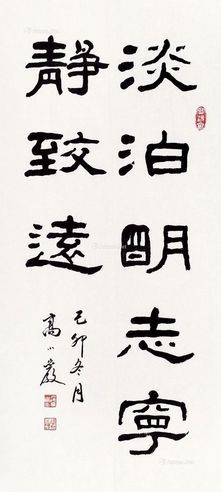 淡泊明志寧
靜致遠
己卯冬月
高小巖